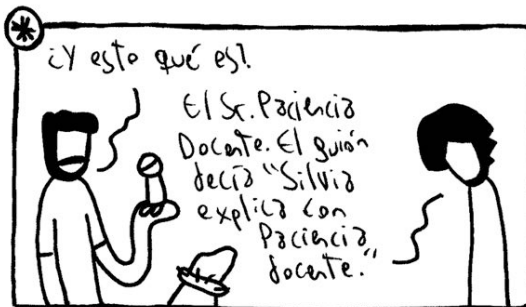 ¿Y esto qué es?
El Sr. Paciencia
Docente. El guión
decía "Silvia
explica con
Paciencia
docente."